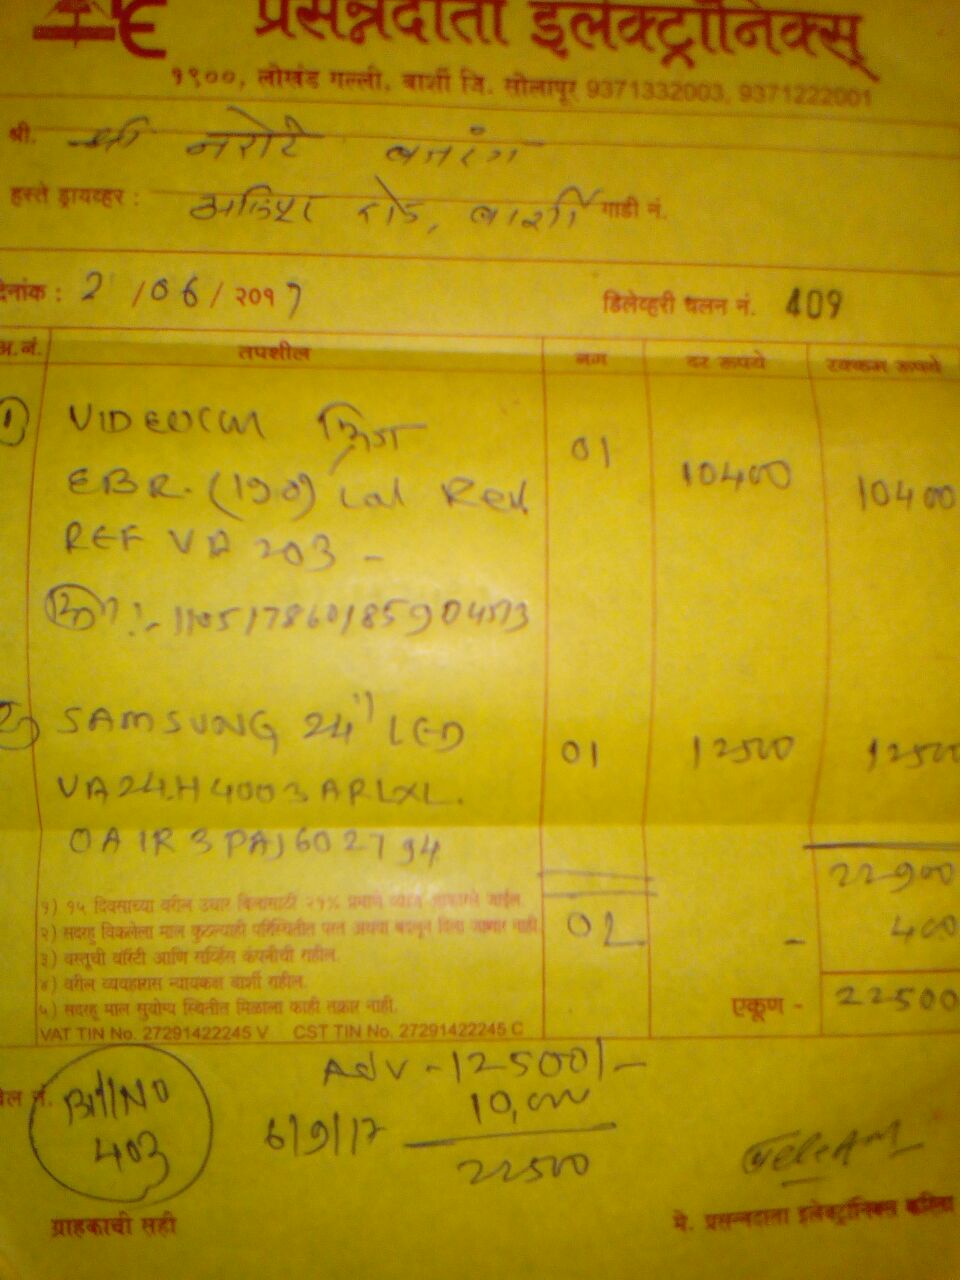 प्रसन्नदाता इलेक्ट्रॉनिक्स्
१९००, लोखंड गल्ली, बार्शी जि. सोलापूर 9371332003, 9371222001
श्री. श्री नरोटे बजरंग
हस्ते ड्रायव्हर : रोड, बार्शी गाडी नं.
देनांक : 2 /06/२०१७ डिलेव्हरी चलन नं. 409
अ.नं. तपशील नग दर रूपये रक्कम रूपये
1 VIDEOCON फ्रिज 01 10400 10400
EBR. (190) Red
REF VA 203 -
2 SAMSUNG 24" LED 01 12500 12500
VA24H4003ARLXL.
OA1R3PAJ602794
22900
१) १५ दिवसाच्या वरील उधार बिलासाठी २१% प्रमाणे व्याज आकारले जाईल.
२) सदरहु विकलेला माल कुठल्याही परिस्थितीत परत अथवा बदलून दिला जाणार नाही 02 - 400
३) वस्तूची वॉरंटी आणि सर्व्हिस कंपनीची राहील.
४) वरील व्यवहारास न्यायकक्ष बार्शी राहील.
५) सदरहु माल सुयोग्य स्थितीत मिळाला काही तक्रार नाही. एकूण - 22500
VAT TIN No. 27291422245 V CST TIN No. 27291422245 C
Adv - 12500/-
बेल नं. Bill NO 403
6/9/17 10,000
22500
ग्राहकाची सही
मे. प्रसन्नदाता इलेक्ट्रॉनिक्स करिता